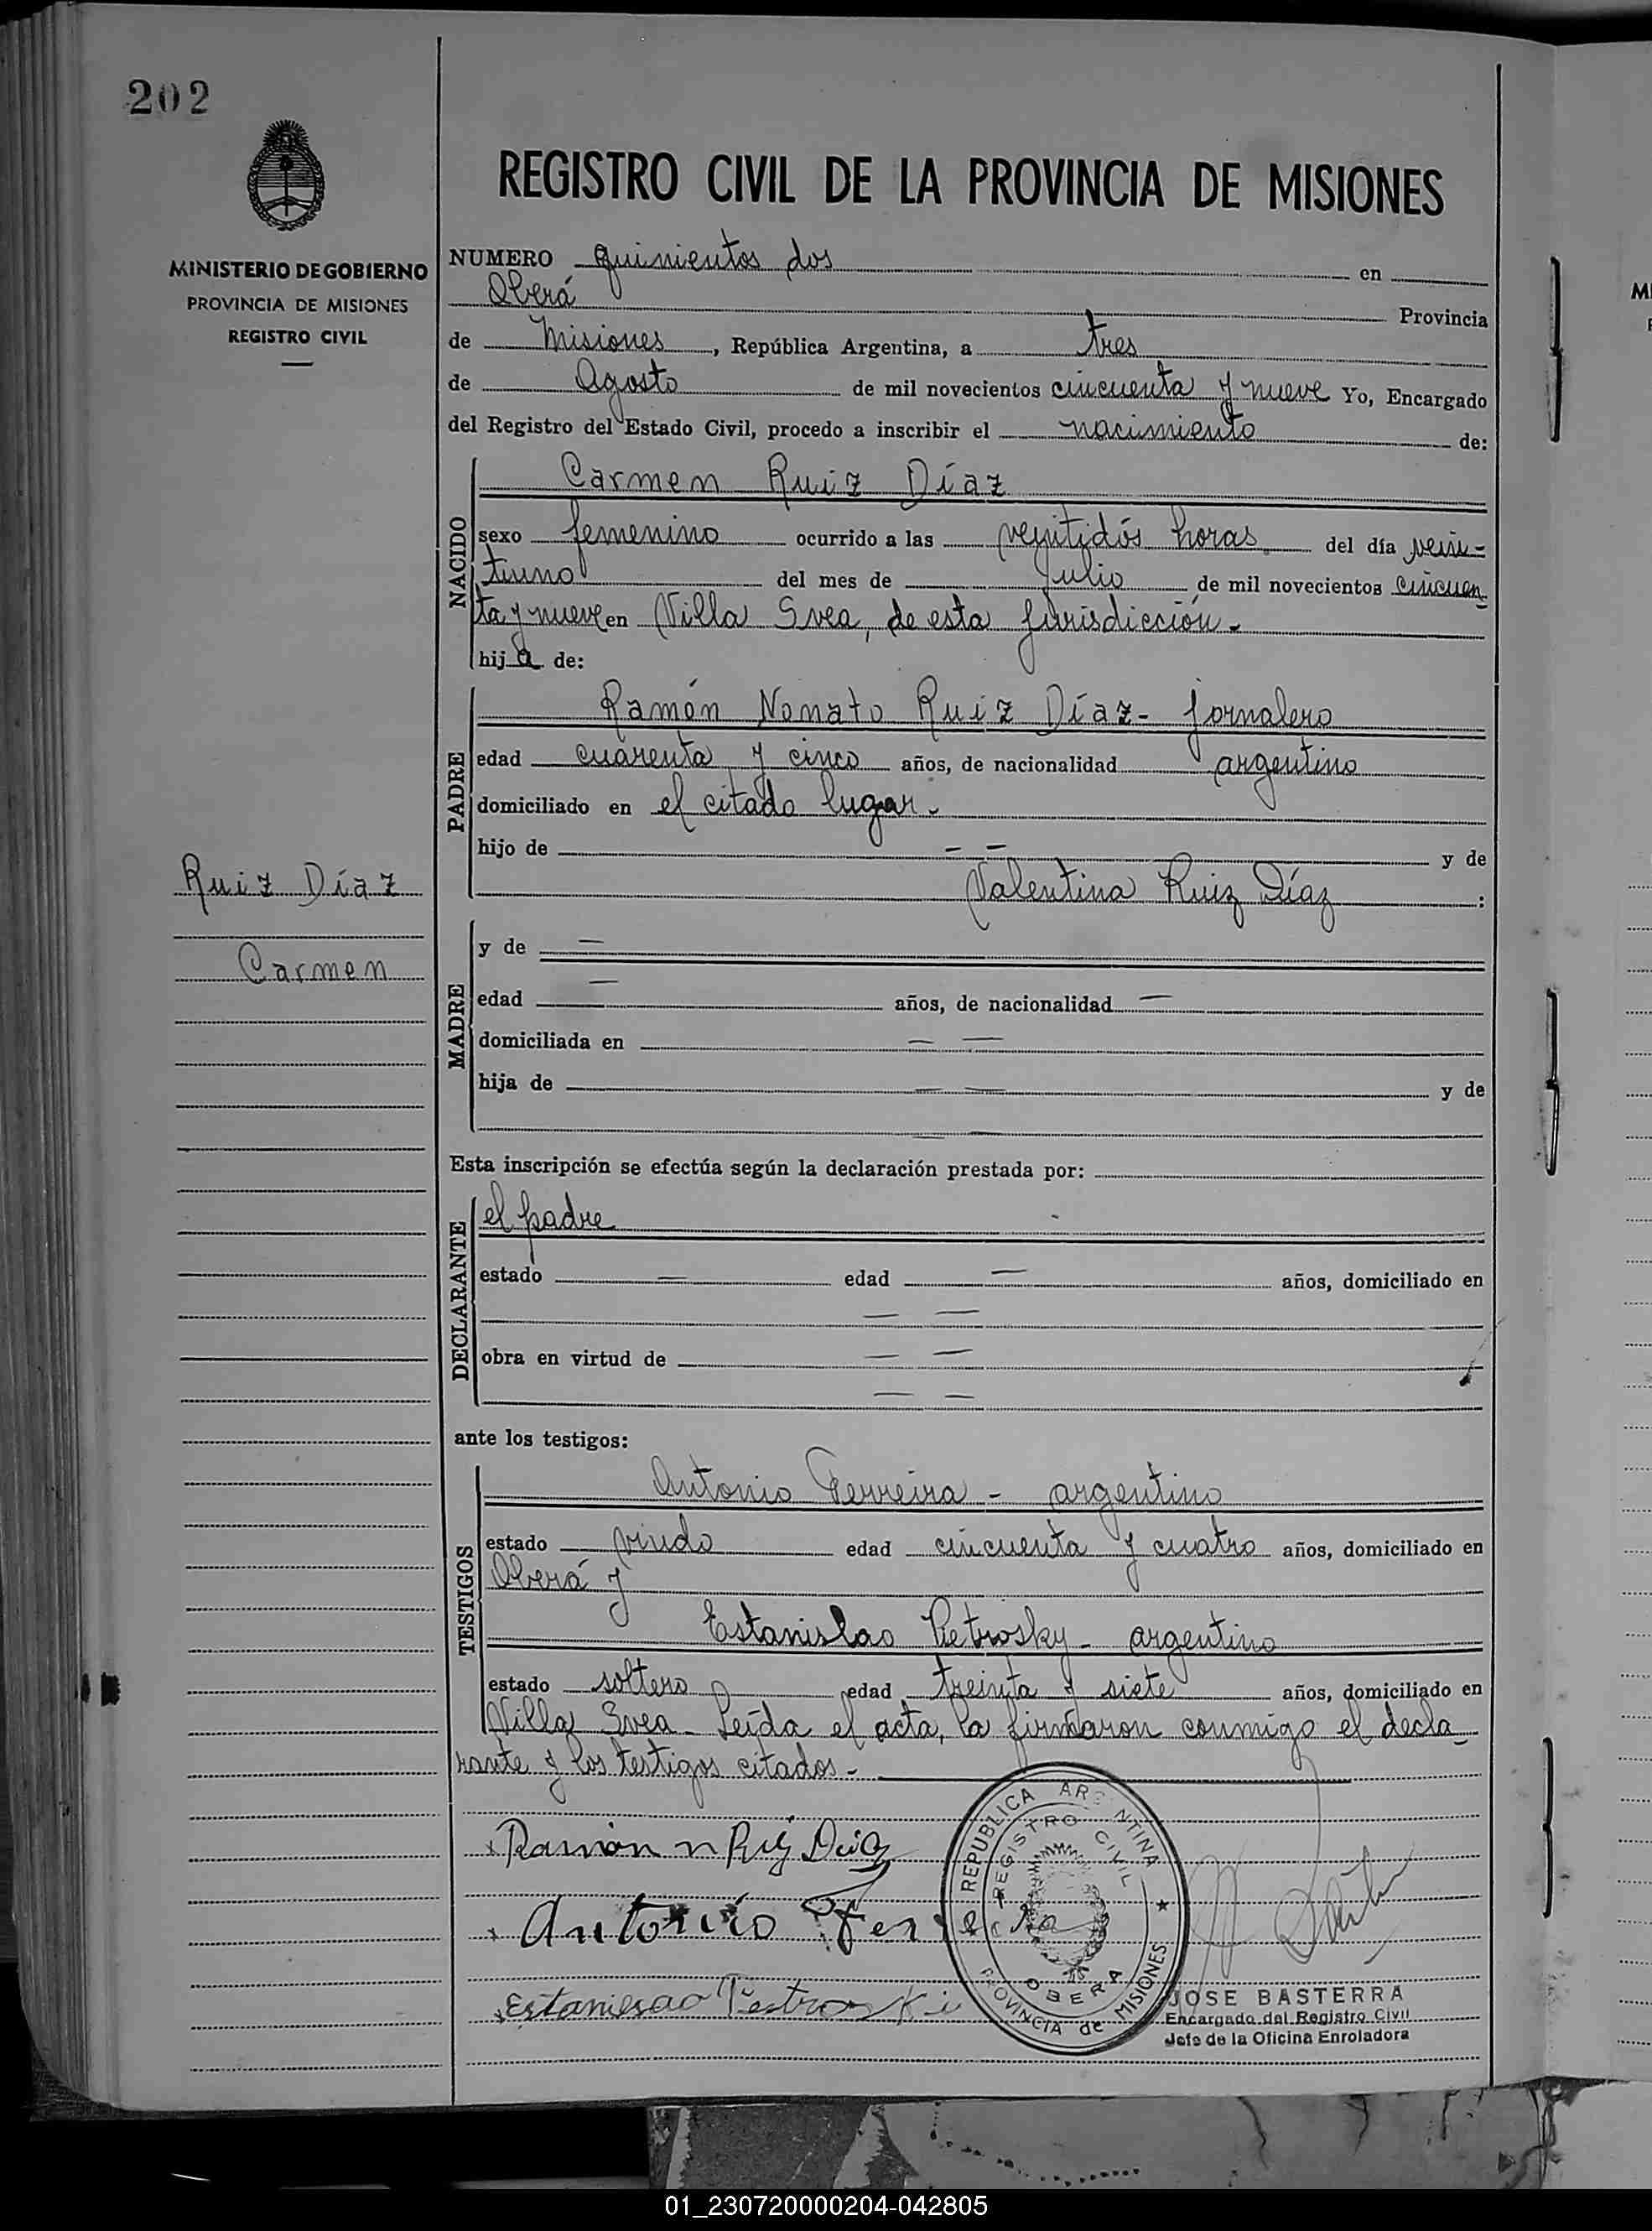 202
MINISTERIO DE GOBIERNO
PROVINCIA DE MISIONES
REGISTRO CIVIL
REGISTRO CIVIL DE LA PROVINCIA DE MISIONES
NUMERO quinientos dos en
Oberá Provincia
de Misiones, República Argentina, a tres
de Agosto de mil novecientos cincuenta y nueve Yo, Encargado
del Registro del Estado Civil, procedo a inscribir el nacimiento de:
NACIDO
Carmen Ruiz Díaz
sexo femenino ocurrido a las veintidós horas del día vein-
tiuno del mes de Julio de mil novecientos cincuen
ta y nueve en Villa Svea, de esta jurisdicción.-
hija de:
PADRE
Ramón Nonato Ruiz Díaz- jornalero
edad cuarenta y cinco años, de nacionalidad argentino
domiciliado en el citado lugar.-
hijo de — — y de
Valentina Ruiz Díaz :
Ruiz Díaz
Carmen
MADRE
y de —
edad — años, de nacionalidad —
domiciliada en — —
hija de — — y de
— —
Esta inscripción se efectúa según la declaración prestada por:
DECLARANTE
el padre
estado — edad — años, domiciliado en
— —
obra en virtud de — —
— —
ante los testigos:
TESTIGOS
Antonio Ferreira - argentino
estado viudo edad cincuenta y cuatro años, domiciliado en
Oberá y
Estanislao Pietrosky - argentino
estado soltero edad treinta y siete años, domiciliado en
Villa Svea - Leída el acta, la firmaron conmigo el decla
rante y los testigos citados.-
Ramón n Ruiz Diaz
Antonio Ferreira
REPUBLICA ARGENTINA
REGISTRO CIVIL
OBERA
PROVINCIA de MISIONES
JOSE BASTERRA
Encargado del Registro Civil
Jefe de la Oficina Enroladora
01_230720000204-042805